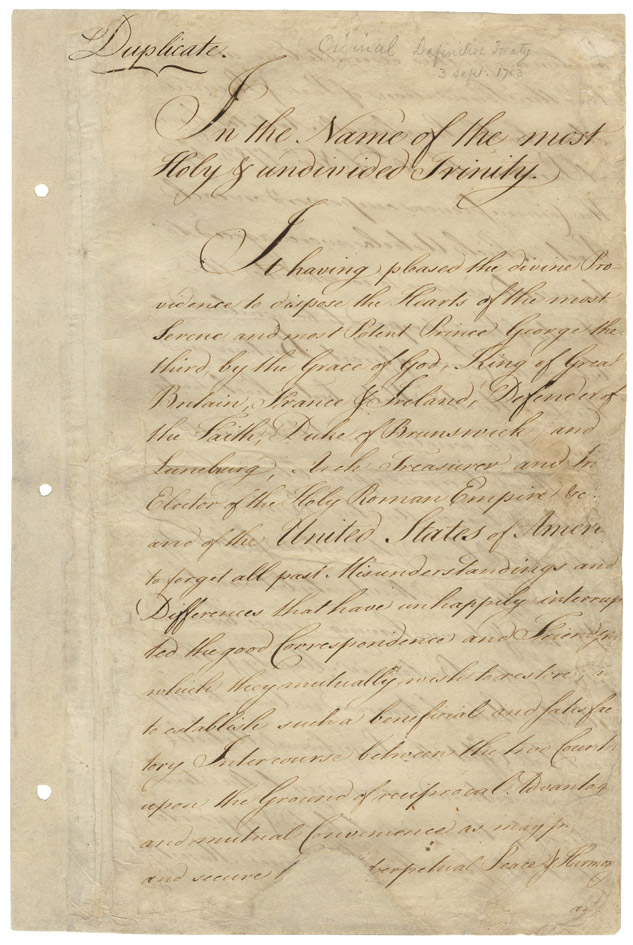 Duplicate.
Original Definitive Treaty
3 Sept. 1783
In the Name of the most
Holy & undivided Trinity.
It having pleased the divine Pro-
vidence to dispose the Hearts of the most
Serene and most Potent Prince George the
third, by the Grace of God, King of Great
Britain, France & Ireland, Defender of
the Faith, Duke of Brunswick and
Luneburg, Arch Treasurer and
Elector of the Holy Roman Empire &c.
and of the United States of Ameri
to forget all past Misunderstandings and
Differences that have unhappily interrup
ted the good Correspondence and Friendship
which they mutually wish to restore;
to establish such a beneficial and satisfac
tory Intercourse between the two Countr
upon the Ground of reciprocal Advantag
and mutual Convenience as may
and secure perpetual Peace & Harmony